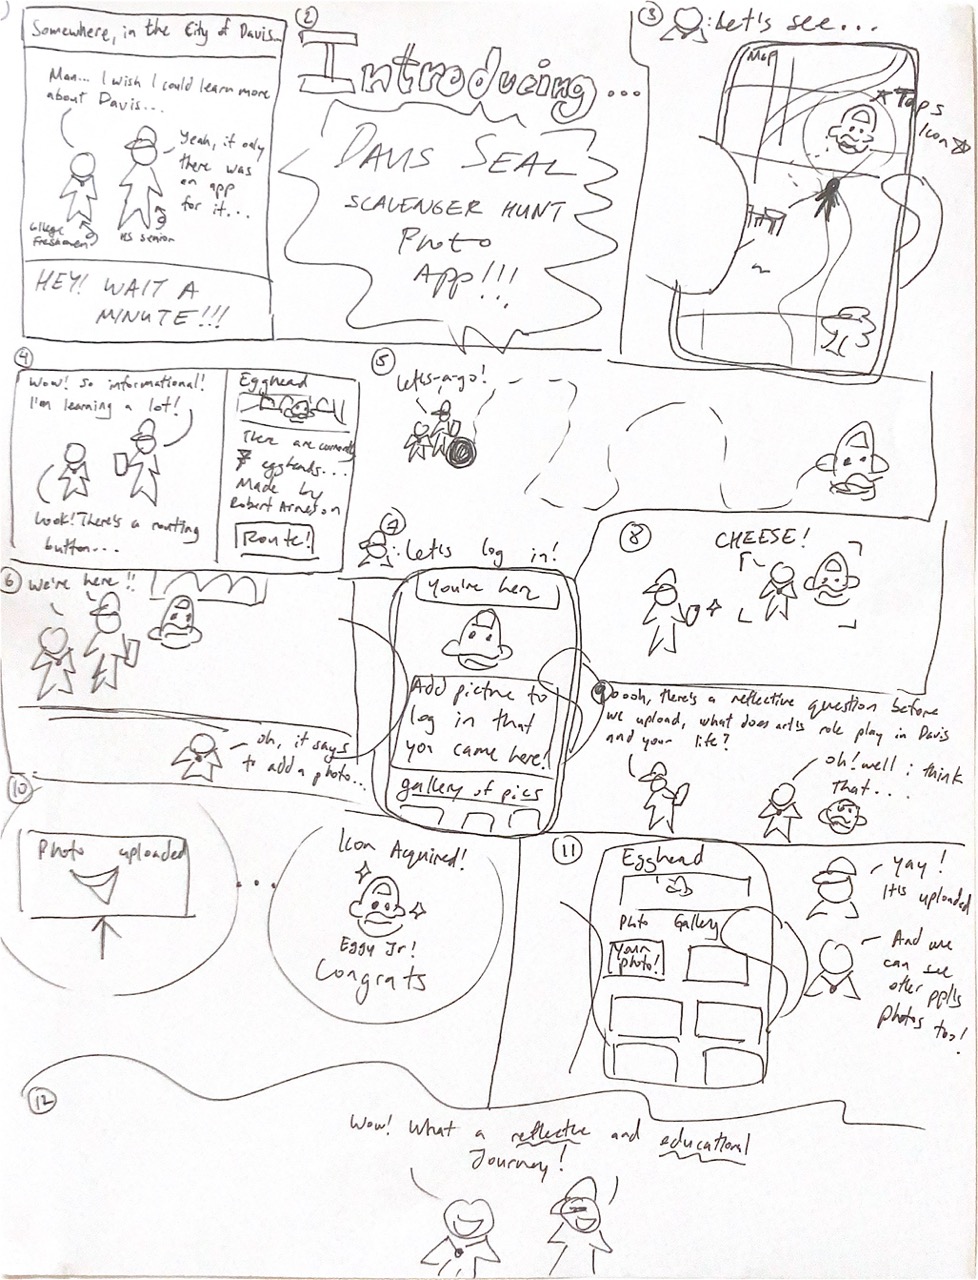 Somewhere, in the City of Davis...
Man... I wish I could learn more
about Davis...
Yeah, if only
there was
an app
for it...
College
Freshmen
HS senior
HEY! WAIT A
MINUTE!!!
2
Introducing...
DAVIS SEAL
SCAVENGER HUNT
Photo
App!!!
3
: Let's see...
Map
* Taps
Icon *
4
Wow! So informational!
I'm learning a lot!
Look! There's a routing
button...
Egghead
There are currently
7 eggheads...
Made by
Robert Arneson
Route!
5
Lets-a-go!
6
We're here!!
oh, it says
to add a photo...
7
: Let's log in!
You're here
Add picture to
log in that
you came here!
gallery of pics
8
CHEESE!
9
Ooooh, there's a reflective question before
we upload, what does art's role play in Davis
and your life?
oh! well i think
that...
10
Photo uploaded
...
Icon Acquired!
Eggy Jr!
Congrats
11
Egghead
Photo Gallery
Your
photo!
yay!
It's uploaded
And we
can see
other ppl's
photos too!
12
Wow! What a reflective and educational
Journey!